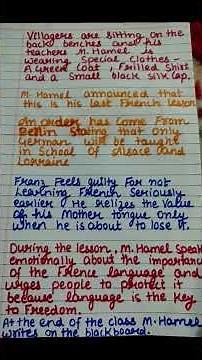 Villagers are sitting on the
back benches and his
teachers M. Hamel is
wearing Special Clothes -
A Green Coat, Frilled Shirt
and a Small black silk cap.
M. Hamel announced that
this is his last French lesson
An order has come From
Berlin Stating that only
German will be taught
in School of Alsace and
Lorraine
Franz Feels guilty For not
Learning French Seriously
earlier He relizes the Value
of his Mother tongue only
when he is about to lose it.
During the lesson, M. Hamel Speak
emotionally about the importance
of the French language and
urges people to protect it
because language is the Key
to Freedom.
At the end of the class M. Hamel
writes on the blackboard.